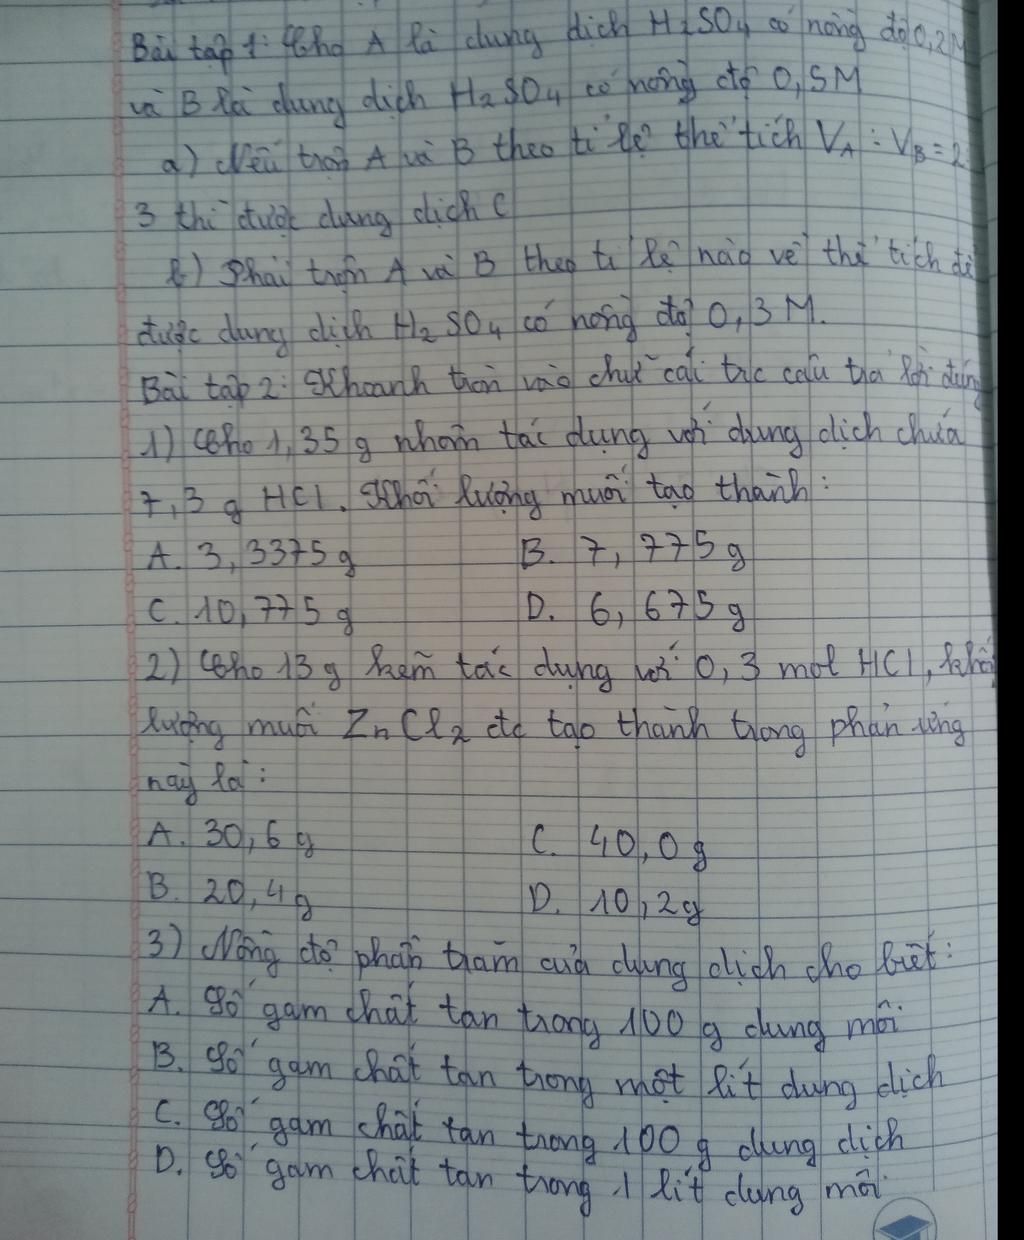 Bài tập 1: Cho A là dung dịch H₂SO₄ có nồng độ 0,2M
và B là dung dịch H₂SO₄ có nồng độ 0,5M
a) Nếu trộn A và B theo tỉ lệ thể tích V_A : V_B = 2:
3 thì được dung dịch C
b) Phải trộn A và B theo tỉ lệ nào về thể tích để
được dung dịch H₂SO₄ có nồng độ 0,3M.
Bài tập 2: Khoanh tròn vào chữ cái trc câu trả lời đúng
1) Cho 1,35 g nhôm tác dụng với dung dịch chứa
7,3 g HCl. Khối lượng muối tạo thành:
A. 3,3375 g B. 7,775 g
C. 10,775 g D. 6,675 g
2) Cho 13 g kẽm tác dụng với 0,3 mol HCl, khối
lượng muối ZnCl₂ đc tạo thành trong phản ứng
này là:
A. 30,6 g C. 40,0 g
B. 20,4 g D. 10,2 g
3) Nồng độ phần trăm của dung dịch cho biết:
A. Số gam chất tan trong 100 g dung môi
B. Số gam chất tan trong một lít dung dịch
C. Số gam chất tan trong 100 g dung dịch
D. Số gam chất tan trong 1 lít dung môi